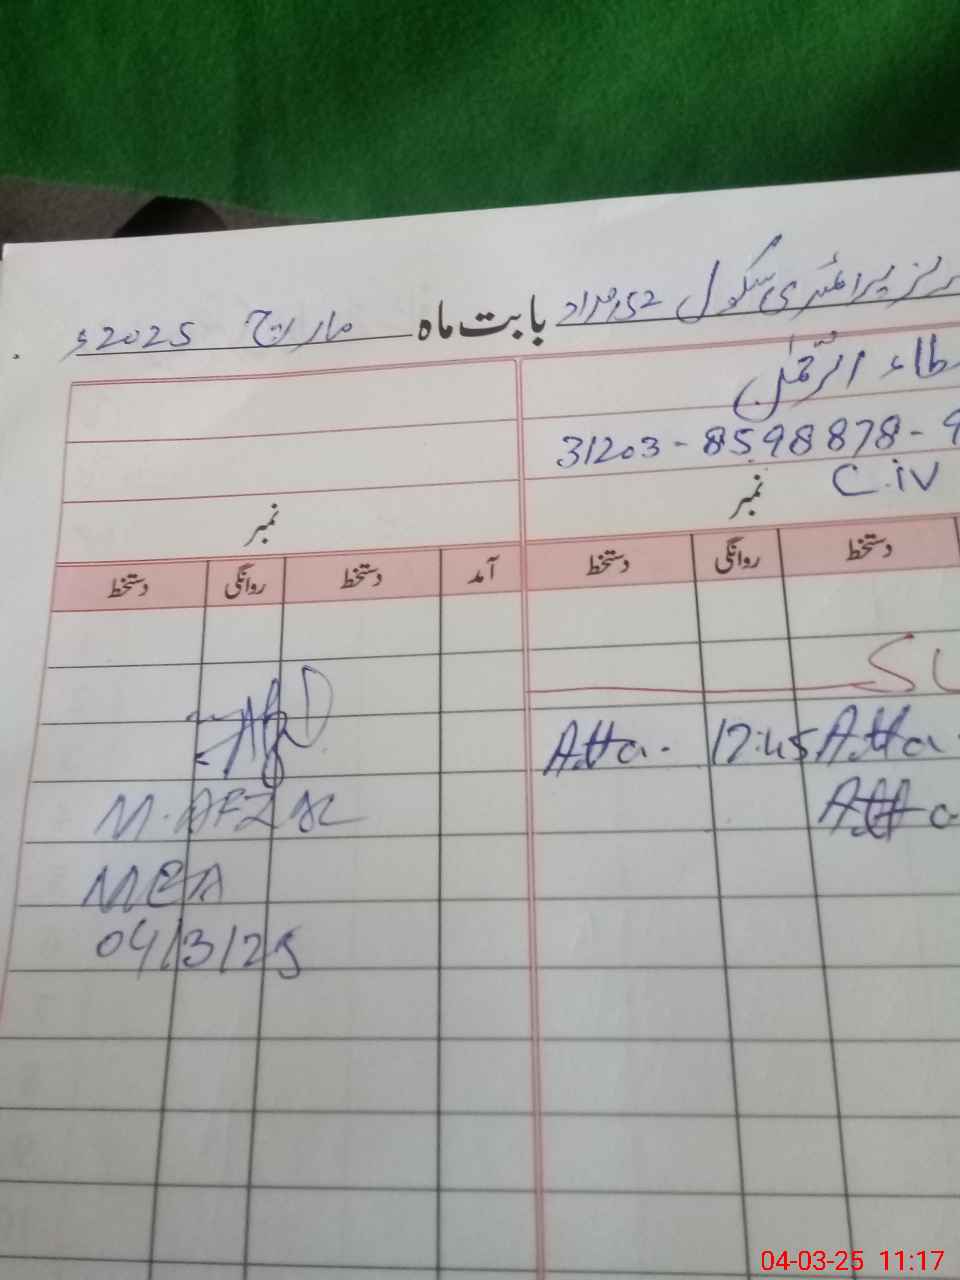 پرائمری سکول بابت ماہ مارچ 2025ء
عطاء الرحمٰن
31203-8598878-9
C.iv
نمبر نمبر
دستخط روانگی دستخط آمد دستخط روانگی دستخط
Atta. 12:45 Atta
Atta
M. AFZAL
MEA
04/3/25
04-03-25 11:17